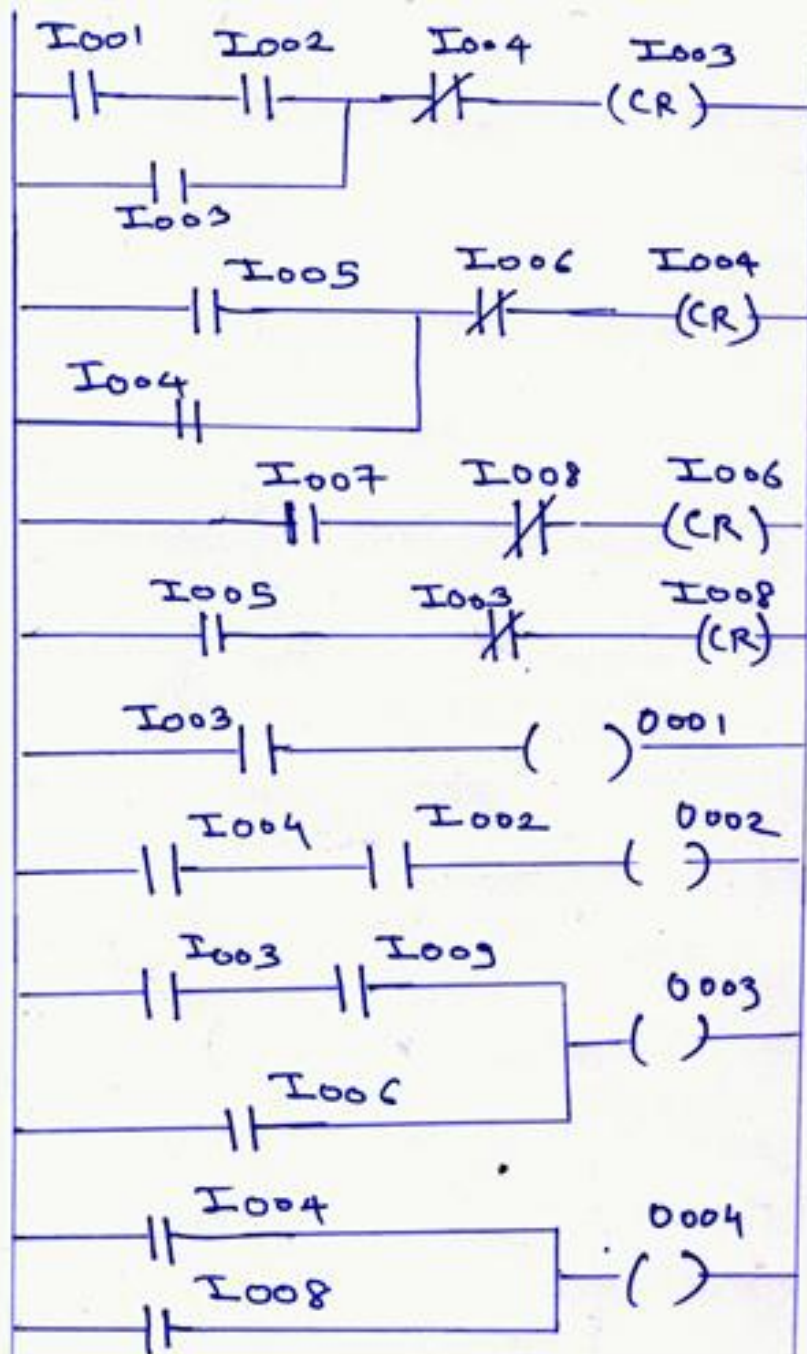 I001 I002 I004 I003
(CR)
I003
I005 I006 I004
(CR)
I004
I007 I008 I006
(CR)
I005 I003 I008
(CR)
I003 0001
I004 I002 0002
I003 I009 0003
I006
I004 0004
I008